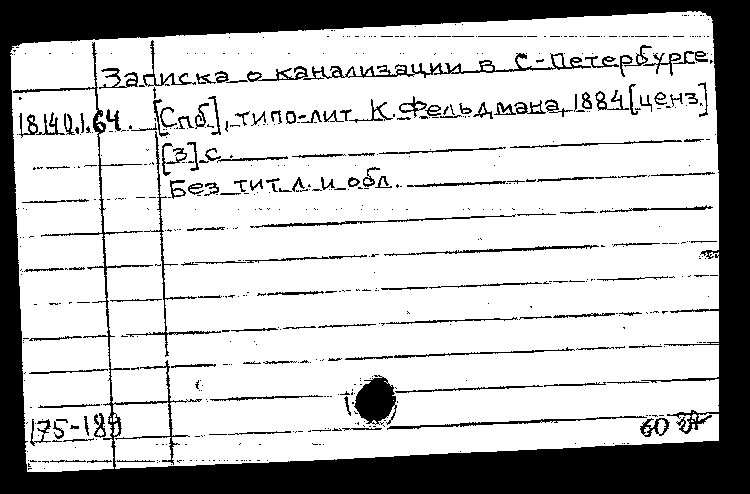 Записка о канализации в С-Петербурге.
18.140.1.64. [Спб], типо-лит. К. Фельдмана, 1884 [ценз.]
[3] с.
Без тит. л. и обл.
175-189
60